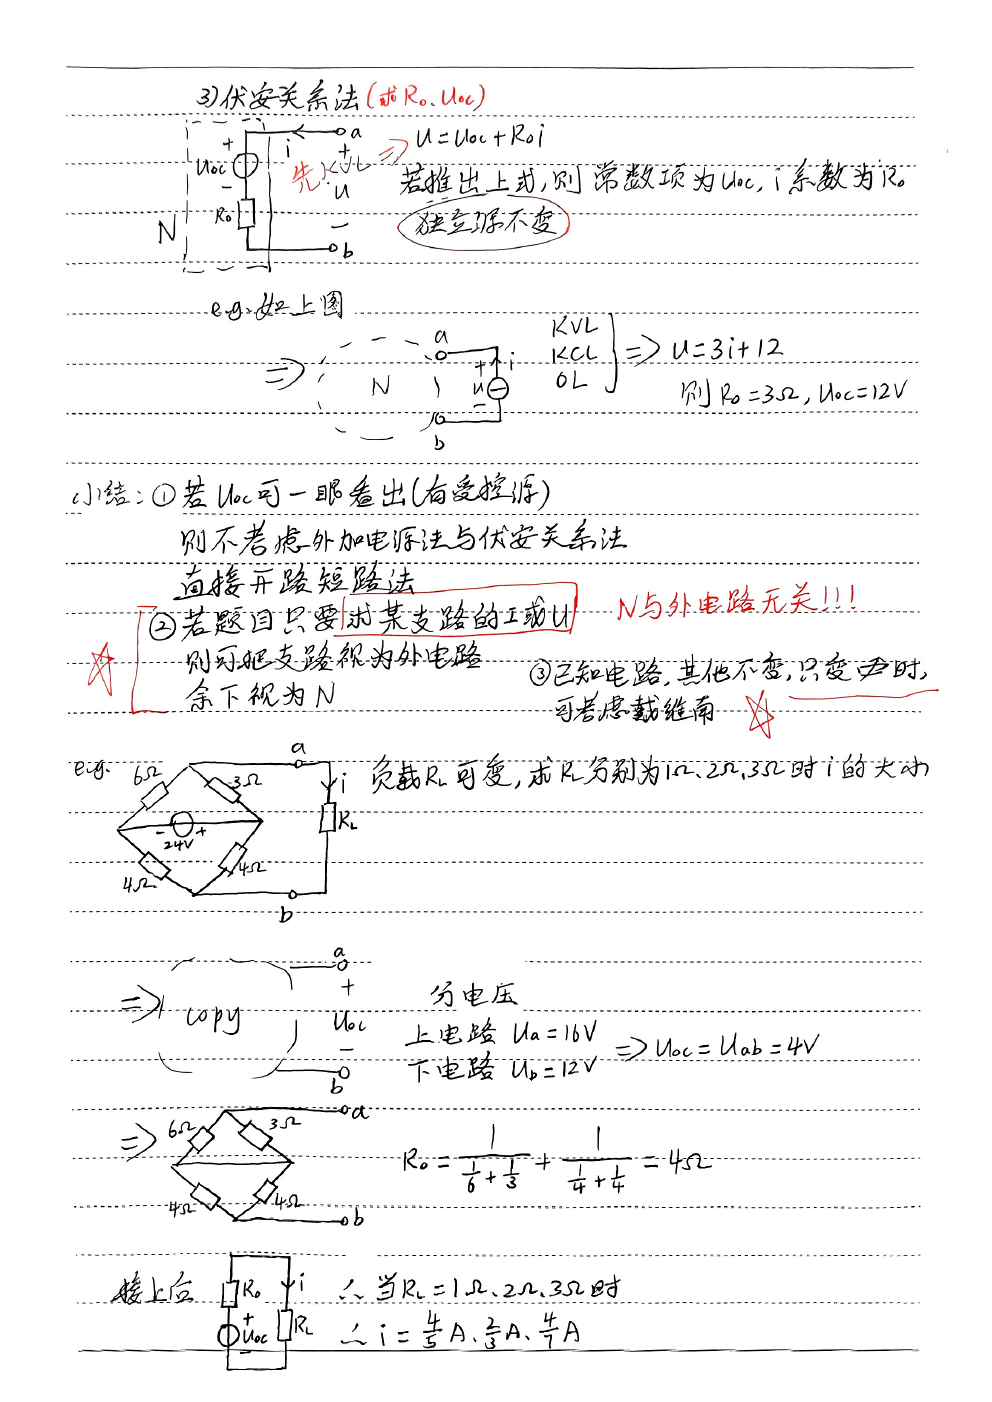 3)伏安关系法(求R₀、Uoc)
a
+
i
Uoc
-
R₀
N
先KVL
+
U
-
b
⇒ U=Uoc+R₀i
若推出上式,则常数项为Uoc,i系数为R₀
独立源不变
e.g.如上图
⇒
N
a
+
i
u
-
b
KVL
KCL
OL
⇒ U=3i+12
则R₀=3Ω,Uoc=12V
小结:①若Uoc可一眼看出(有受控源)
则不考虑外加电源法与伏安关系法
直接开路短路法
②若题目只要求某支路的I或U
N与外电路无关!!!
则可把支路视为外电路
余下视为N
③已知电路,其他不变,只变一个时,
可考虑戴维南
e.g.
6Ω
3Ω
a
i
RL
- 24V +
4Ω
4Ω
b
负载RL可变,求RL分别为1Ω、2Ω、3Ω时i的大小
⇒
copy
a
+
Uoc
-
b
分电压
上电路 Ua=16V
下电路 Ub=12V
⇒ Uoc=Uab=4V
⇒
6Ω
3Ω
a
4Ω
4Ω
b
R₀=1/(1/6+1/3)+1/(1/4+1/4)=4Ω
接上后
R₀
i
+
Uoc
-
RL
∴当RL=1Ω、2Ω、3Ω时
∴i=4/5A、2/3A、4/7A